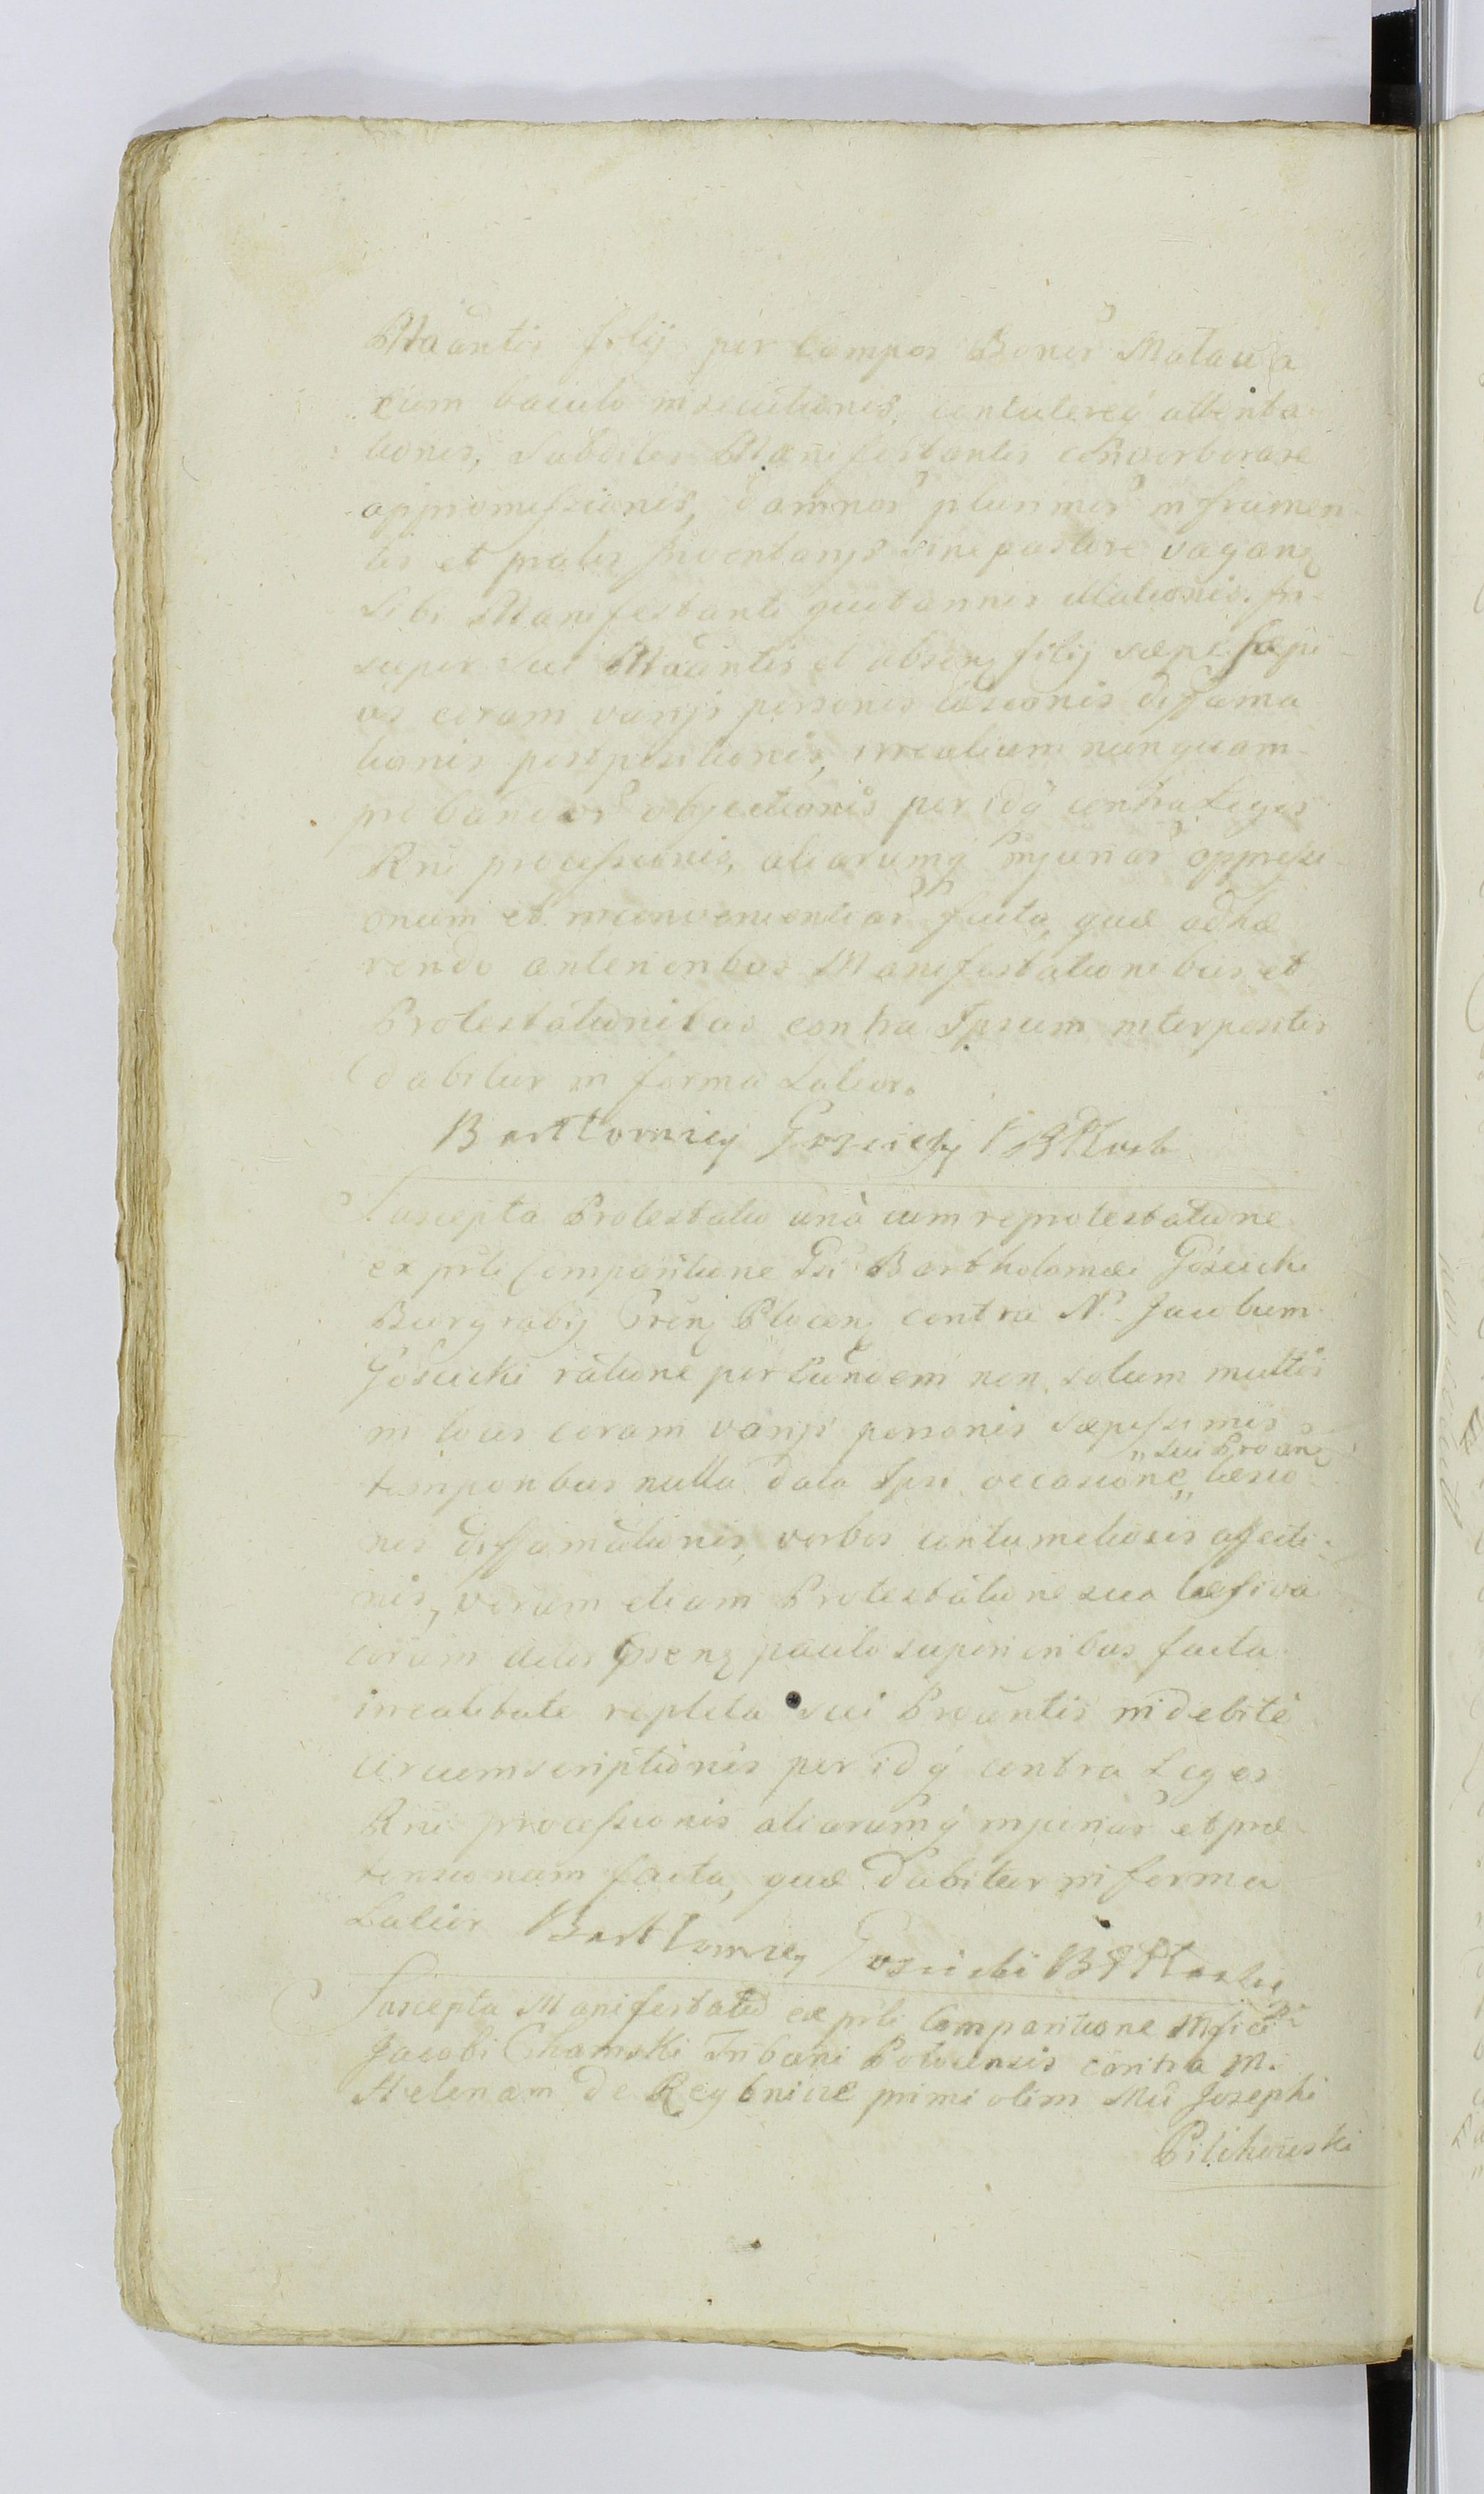 Maantis filij per Campos Bonor Matawa
cum baculo insecutionis, contulereq attenta
tionis, subditos Manifestantis convorberare
appromissionis, damnor plurimor in frumen-
tis et pratis Inventarys sine pastore vagan
sibi Manifestanti quotannis illationis. In-
super sui Maantis et absen filij sæpe sæpi-
us coram varijs personis læsionis diffama
tionis postpositionis, irrealium nunquam
probandor objectionis per idq contra Leges
Rni processionis, aliarumq injuriar oppressi-
onum et inconvenientiar facta, quæ adhæ
rendo anterioribus Manifestationibus et
Protestationibus contra Ipsum interpositis
dabitur in forma Latior.
Bartłomiey Gosciczky
Suscepta Protestatio una cum reprotestatione
ex prli Comparitione Gsi Bartholomæi Gosicki
Burgrabij Cren Plocen contra N. Jacobum
Gościcki ratione per Eundem non solum multis
in locis coram varijs personis sæpissimis
temporibus nulla data Ipsi occasione „ læsio
„ sui Proan
nis diffamationis, verbis contumeliosis affecti-
nis, verum etiam Protestatione sua læsiva
coram actis psen paulo superioribus facta
irrealitate repleta sui Proantis indebite
circumscriptionis per idq contra Leges
Rni processionis aliarumq injuriar et præ-
tensionum facta, quæ dabitur in forma
Latior Bartłomiey Gosciski
Suscepta Manifestatio ex prli Comparitione Mfici
Jacobi Chamski Tribuni Plocensis contra M.
Helenam de Reybnice primi olim Mci Josephi
Pilihowski